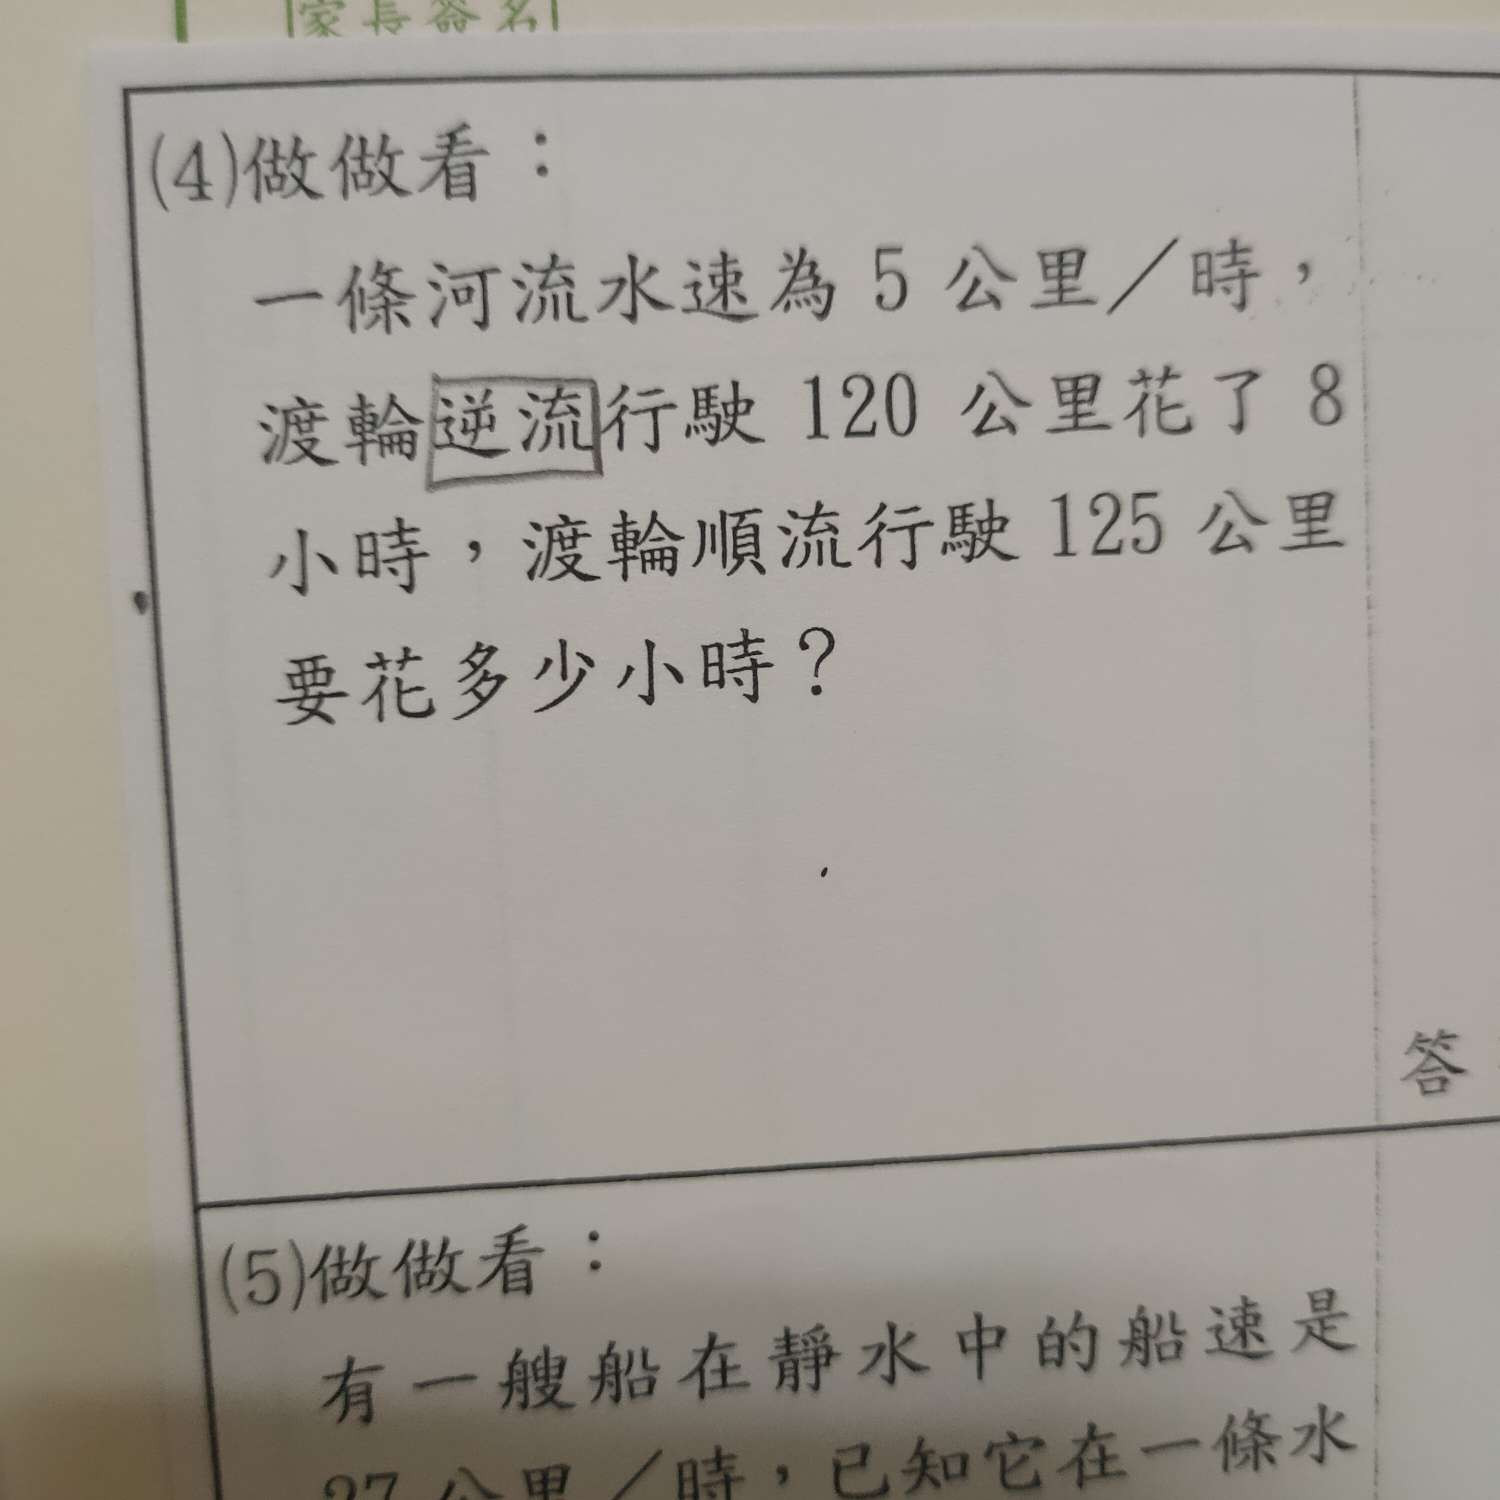 家長簽名
(4)做做看：
一條河流水速為 5 公里／時，
渡輪逆流行駛 120 公里花了 8
小時，渡輪順流行駛 125 公里
要花多少小時？
答
(5)做做看：
有一艘船在靜水中的船速是
27 公里／時，已知它在一條水